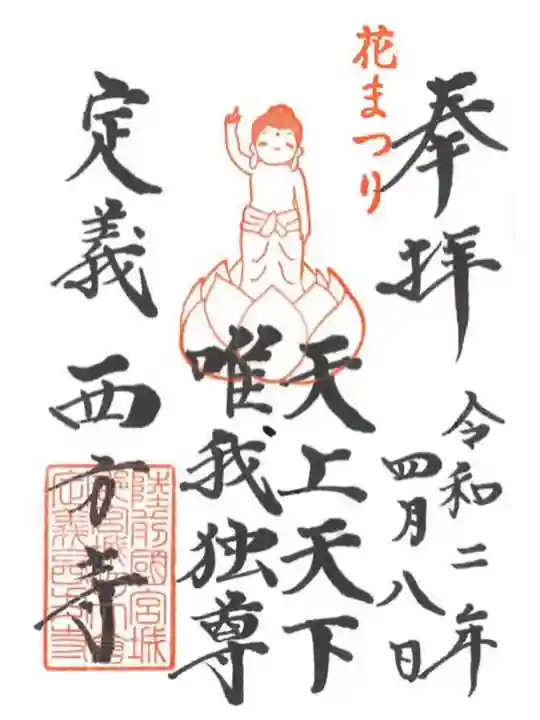 奉拝
花まつり
令和二年
四月八日
天上天下
唯我独尊
定義 西方寺